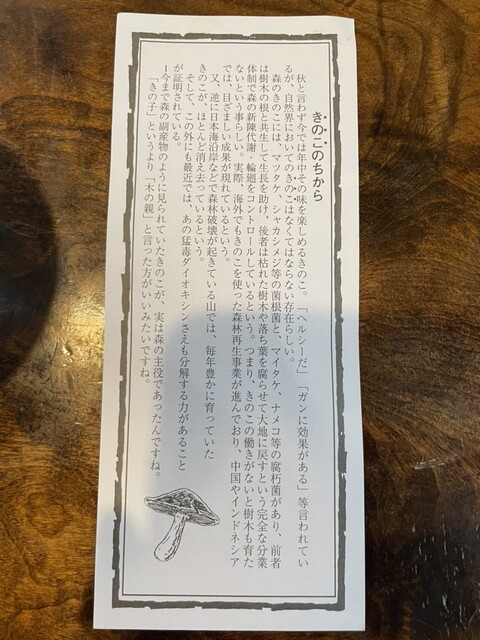 きのこのちから
秋と言わず今では年中その味を楽しめるきのこ。「ヘルシーだ」「ガンに効果がある」等言われてい
るが、自然界においてのきのこはなくてはならない存在らしい。
森のきのこには、マツタケ、シャカシメジ等の菌根菌と、マイタケ、ナメコ等の腐朽菌があり、前者
は樹木の根と共生して生長を助け、後者は枯れた樹木や落ち葉を腐らせて大地に戻すという完全な分業
体制で森の新陳代謝・輪廻をコントロールしているという。つまり、きのこの働きがないと樹木も育た
ないという事らしい。実際、海外でもきのこを使った森林再生事業が進んでおり、中国やインドネシア
では、目ざましい成果が現れているという。
又、逆に日本海沿岸などで森林破壊が起きている山では、毎年豊かに育っていた
きのこが、ほとんど消え去っているという。
そして、この外にも最近では、あの猛毒ダイオキシンさえも分解する力があること
が証明されている。
今まで森の副産物のように見られていたきのこが、実は森の主役であったんですね。
「きの子」というより「木の親」と言った方がいいみたいですね。